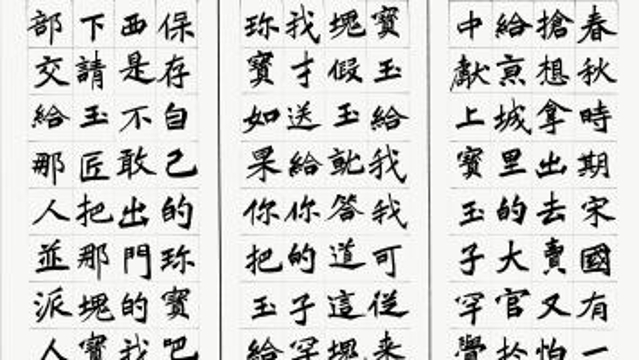 春秋時期宋國有一
搶想拿出去賣又怕
給京城里的大官於
中獻上寶玉子罕覺
寶玉給我我可從來
塊假玉就答道這塊
我才送給你的子罕
珎寶如果你把玉給
保存自己的珎寶吧
西是不敢出門的我
下請玉匠把那塊寶
部交給那人並派人